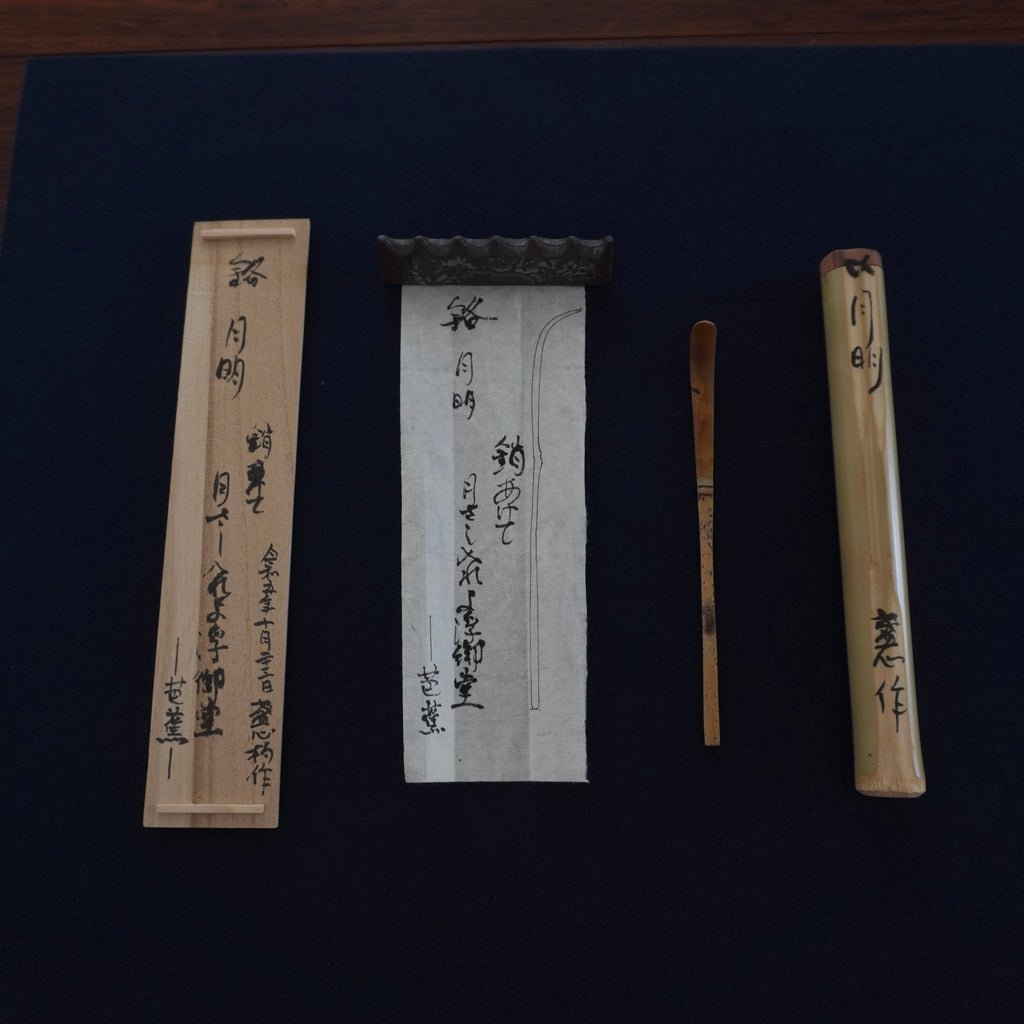 銘 月明
令和五年十月二十三日
月さし入れよ浮御堂
―芭蕉―
銘 月明
鎖あけて
月さし入れよ浮御堂
―芭蕉
〆
月明
作